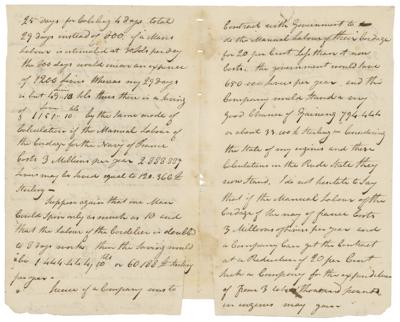 25 days for Cabeling 4 days total
29 days instead of 300. if a Mans
labour is estimated at 4 Livs per day
the 300 days would incur an expence
of 1200 livers Whereas my 29 days
is but 43..10 sols thus there is a saving
of 1151..10 by the same mode of
Calculation if the Manual Labour of
the Cordage for the Navy of France
Costs 3 Millions per year 2888889
livers may be saved equal to 120.360 £
Sterling —
Suppose again that one Man
Could Spin only as much as 10 and
that the Labour of the Cordelier is doubled
to 8 days works, then the Saving would
be 1.444.444 or 60188 £ Sterling
per year —
hence if a Company was to
Contract with Government to
do the Manual Labour of their Cordage
for 20 per Cent less than it now
Costs. the government would save
650.000 livers per year and this
Company would Stand a very
Good Chance of Gaining 794.444
or about 33.100 £ Sterling — Considering
the State of my engines and these
Calculations in the Rude State they
now Stand, I do not hesitate to Say
that if the Manual Labour of the
Cordage of the navy of france Costs
3 Millions of livers per year and
a Company Can get the Contract
at a Reduction of 20 per Cent
such a Company for the expenditure
of from 3 to thousand pounds
in engines may gain